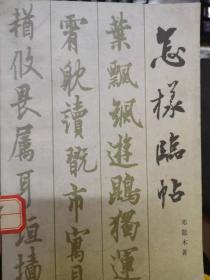 怎樣臨帖
邓散木著
葉飄颻遊鵾獨運
霄耽讀翫市寓目
攸畏属耳垣墻